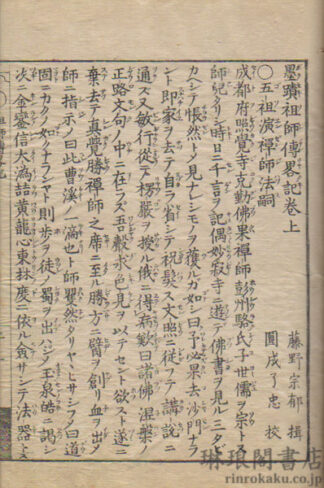 墨蹟祖師傳畧記卷上
藤野宗郁 揖
圓成了忠 校
○五祖演禪師法嗣
成都府照覺寺克勤佛果禪師彭州駱氏子世儒ヲ宗トス
師記クリシテ時日ニ千言ヲ記偶妙寂寺ニ遊テ佛書ヲ見ル三タビ
カヘシテ悵然トメ見ナレシモノヲ獲ルガ如シ曰予必界去沙門ナラ
ント即家ヲ去テ自省ニシテ祝髪ス文照ニ從フテ講説ニ
通ス又敏行從テ楞嚴ヲ授ル俄ニ得病歎曰諸佛涅槃ノ
正路文句ノ中ニ在ラズ吾聲求色見ヲ以テセント欲ス遂ニ
棄去テ真覺勝禪師之席ニ至ル勝方ニ臂ヲ創リ血ヲ出メ
師ニ指示メ曰此曹溪ノ一滴也ト師矍然タリヤヽミサシフメ曰道
固ニカクノ如クナランヤト則歩ヲ徒メ蜀ヲ出ハジメ玉泉皓ニ謁シ
次ニ金鑾信大潙喆黄龍心東林度ニ依ル僉サシテ法器トス
琳琅閣書店
rinrokaku.co.jp